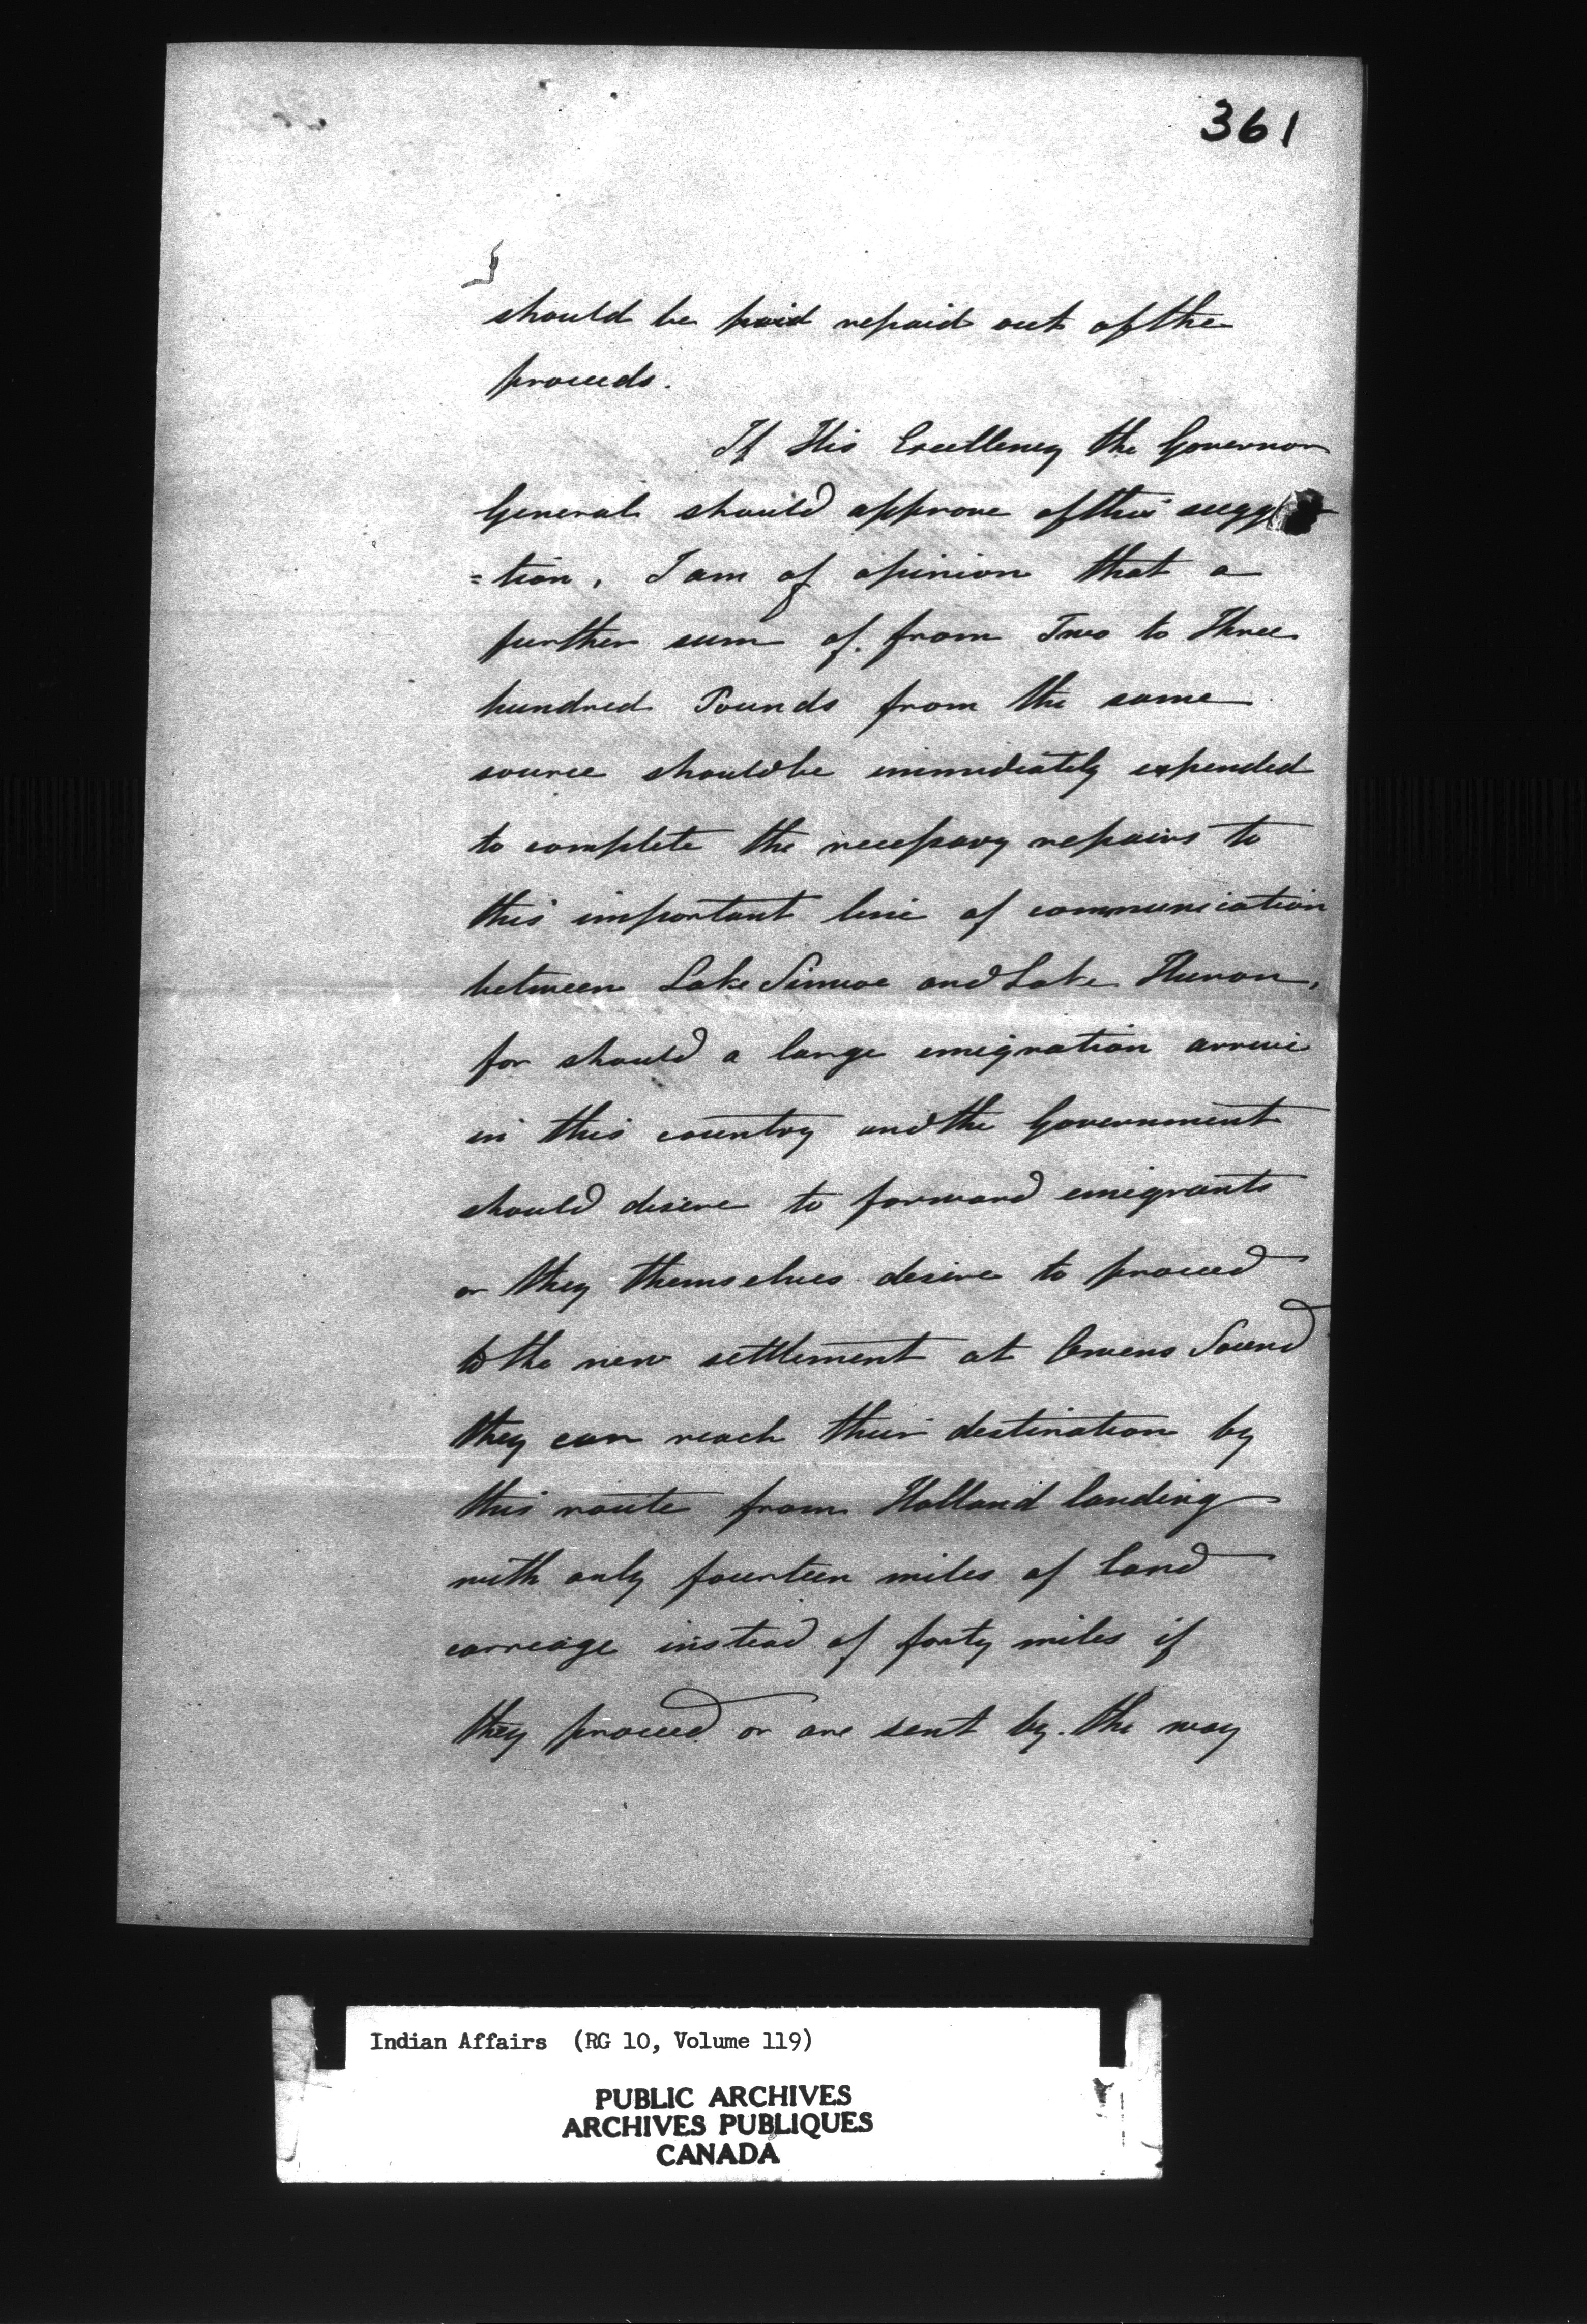 361
should be paid repaid out of the
proceeds.
If His Excellency the Governor
General should approve of this sugg
=tion, I am of opinion that a
further sum of from Two to Three
hundred Pounds from the same
source should be immediately expended
to complete the necessary repairs to
this important line of communication
between Lake Simcoe and Lake Huron,
for should a large emigration arrive
in this country and the Government
should desire to forward emigrants
or they themselves desire to proceed
to the new settlement at Owens Sound
they can reach their destination by
this route from Holland landing
with only fourteen miles of land
carriage instead of forty miles if
they proceed or are sent by the way
Indian Affairs (RG 10, Volume 119)
PUBLIC ARCHIVES
ARCHIVES PUBLIQUES
CANADA